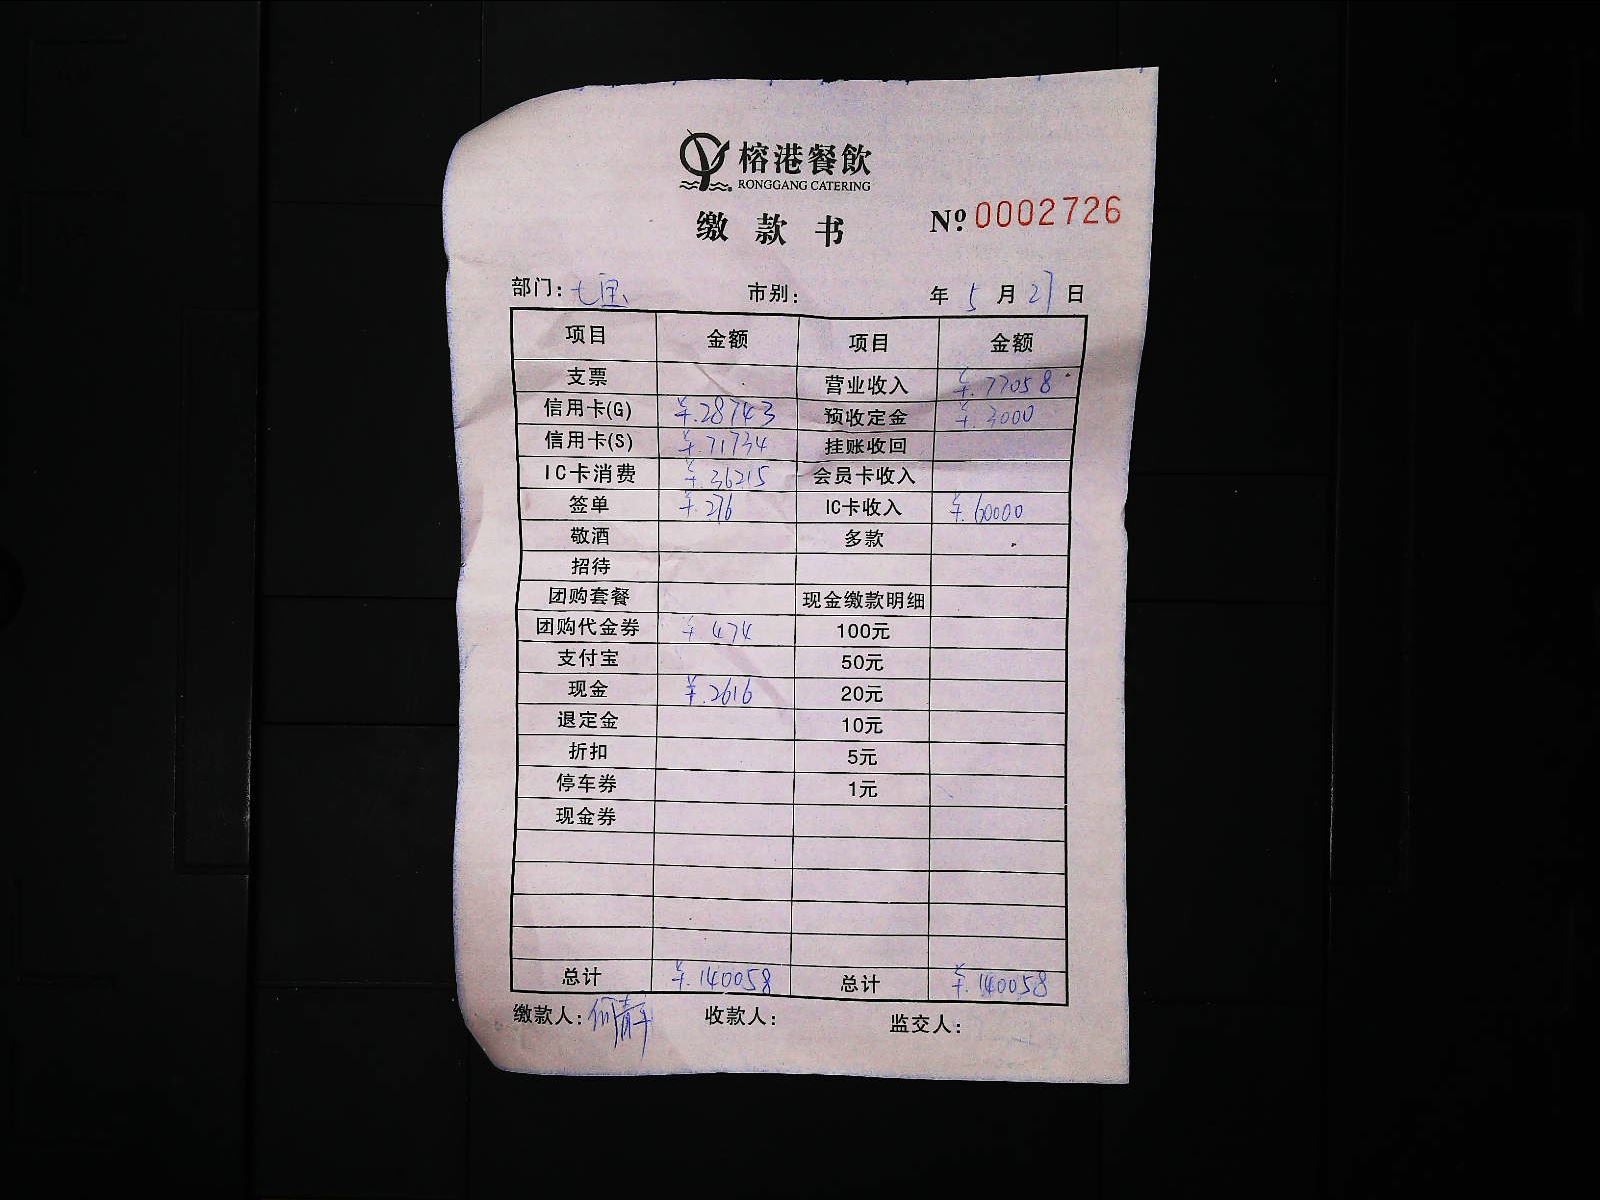 榕港餐飲
RONGGANG CATERING
缴款书 №0002726
部门: 七宝 市别: 年 5 月 27 日
项目 金额 项目 金额
支票 营业收入 ¥.77058
信用卡(G) ¥.28743 预收定金 ¥.3000
信用卡(S) ¥.71734 挂账收回
IC卡消费 ¥.36215 会员卡收入
签单 ¥.276 IC卡收入 ¥.60000
敬酒 多款
招待
团购套餐 现金缴款明细
团购代金券 ¥.474 100元
支付宝 50元
现金 ¥.2616 20元
退定金 10元
折扣 5元
停车券 1元
现金券
总计 ¥.140058 总计 ¥.140058
缴款人: 收款人: 监交人: